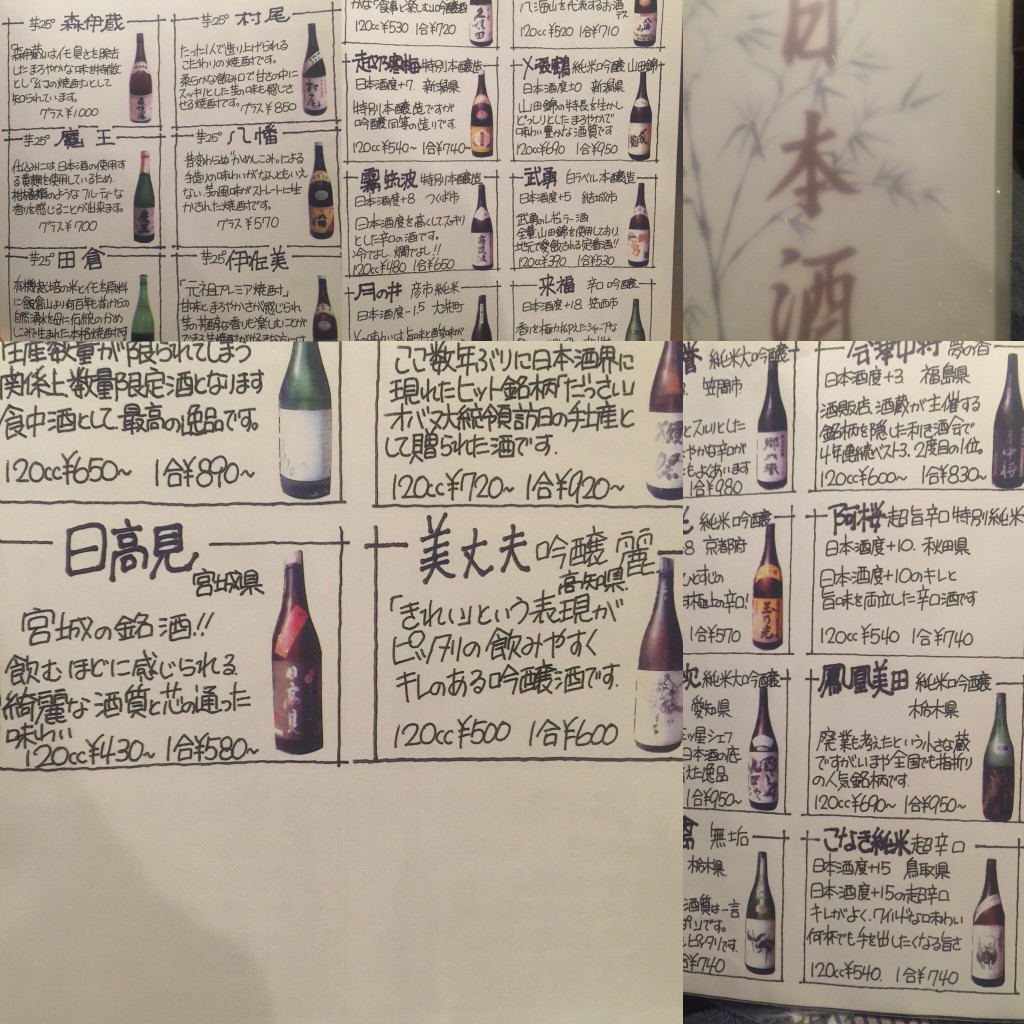 芋25° 森伊蔵
森伊蔵はイモ臭さを除去
したまろやかな味が特徴
とし「幻の焼酎」として
知られています。
グラス¥1000
芋25° 村尾
たった1人で造り上げられる
こだわりの焼酎です。
柔らかな飲み口で甘さの中に
スッキリとした芋の味も感じさ
せる焼酎です。
グラス¥850
芋25° 魔王
仕込みにす日本酒の使用す
る黄麹を使用しているため
柑橘類のような フルーティーな
香りを感じることが出来ます。
グラス¥700
芋25° 八幡
昔気からぬ「かめしこみ」による
手造りの味わいがなんともいえ
ない、芋の風味がストレートに生
かされた焼酎です。
グラス¥570
芋25° 田倉
有機栽培の米と芋を原料
芋25° 伊佐美
「元祖プレミア焼酎」
甘味とまろやかさが感じられ
120cc¥530 1合¥720
八海山を代表するお酒
です
120cc¥520 1合¥710
越乃寒梅 特別本醸造
日本酒度+7. 新潟県
特別本醸造ですが
吟醸同等の造りです.
120cc¥540~ 1合¥740~
〆張鶴 純米吟醸 山田錦
日本酒度±0 新潟県
山田錦の特長を生かし
どっしりとしたまろやかで
味わい豊かな酒質です
120cc¥690 1合¥950
霧筑波 特別本醸造
日本酒度+8 つくば市
日本酒度を高くしてスッキリ
とした辛口の酒です。
冷でよし、燗でよし!!
120cc¥480 1合¥650
武勇 白ラベル本醸造
日本酒度+5 結城市
武勇のレギュラー酒
全量山田錦を使用しており
地元で愛飲される定番酒!!
120cc¥390 1合¥530
月の井 彦市純米
日本酒度-1.5 大洗町
来福 辛口吟醸
日本酒度+18. 筑西市
日本酒
生産数量が限られてしまう
関係上、数量限定酒となります
食中酒として、最高の逸品です。
120cc¥650~ 1合¥890~
ここ数年ぶりに日本酒界に
現れたヒット銘柄「だっさい」
オバマ大統領訪日の手土産と
して贈られた酒です.
120cc¥720~ 1合¥920~
日高見
宮城県
宮城の銘酒!!
飲むほどに感じられる
綺麗な酒質と芯の通った
味わい
120cc¥430~ 1合¥580~
美丈夫 吟醸 麗
高知県.
「きれい」という表現が
ピッタリの飲みやすく
キレのある吟醸酒です.
120cc¥500 1合¥600
誉 純米大吟醸
笠間市
とスルリとした
やかな辛口が
もよくあいます
1合¥980
会津中将 夢の香
日本酒度+3. 福島県
酒販店、酒蔵が主催する
銘柄を隠した利き酒会で
4年連続ベスト3. 2度目の1位。
120cc¥600~ 1合¥830~
純米吟醸
8 京都府
す極上の辛口!
1合¥570
阿櫻 超旨辛口 特別純米
日本酒度+10. 秋田県
日本酒度+10のキレと
旨味を両立した辛口酒です
120cc¥540 1合¥740
純米大吟醸
愛知県
ミツ星シェフ
日本酒の底
えた逸品
1合¥950~
鳳凰美田 純米吟醸
栃木県
廃業も考えたという小さな蔵
ですがいまや全国でも指折り
の人気銘柄です.
120cc¥690~ 1合¥950~
無垢
栃木県
酒質は一言
ピッタリです.
合¥740
こなき純米 超辛口
日本酒度+15 鳥取県
日本酒度+15の超辛口
キレがよく、ワイルドな味わい
何杯でも手を出したくなる旨さ
120cc¥540. 1合¥740